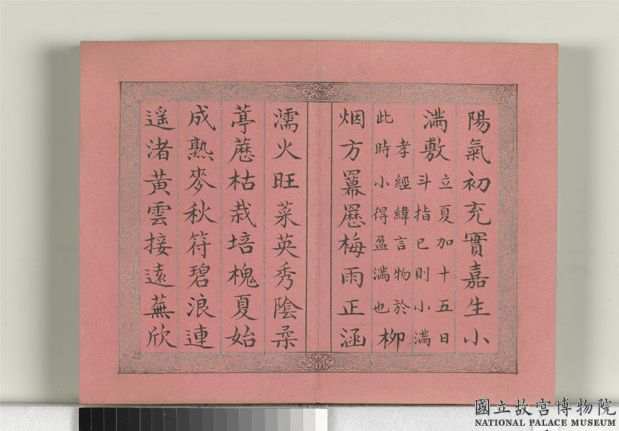 陽氣初充實嘉生小
滿敷
立夏加十五日
斗指已則小滿
孝經緯言物於
此時小得盈滿也
柳
烟方羃䍥梅雨正涵
濡火旺菜英秀陰柔
葶藶枯栽培槐夏始
成熟麥秋符碧浪連
遥渚黃雲接遠蕪欣
國立故宮博物院
NATIONAL PALACE MUSEUM